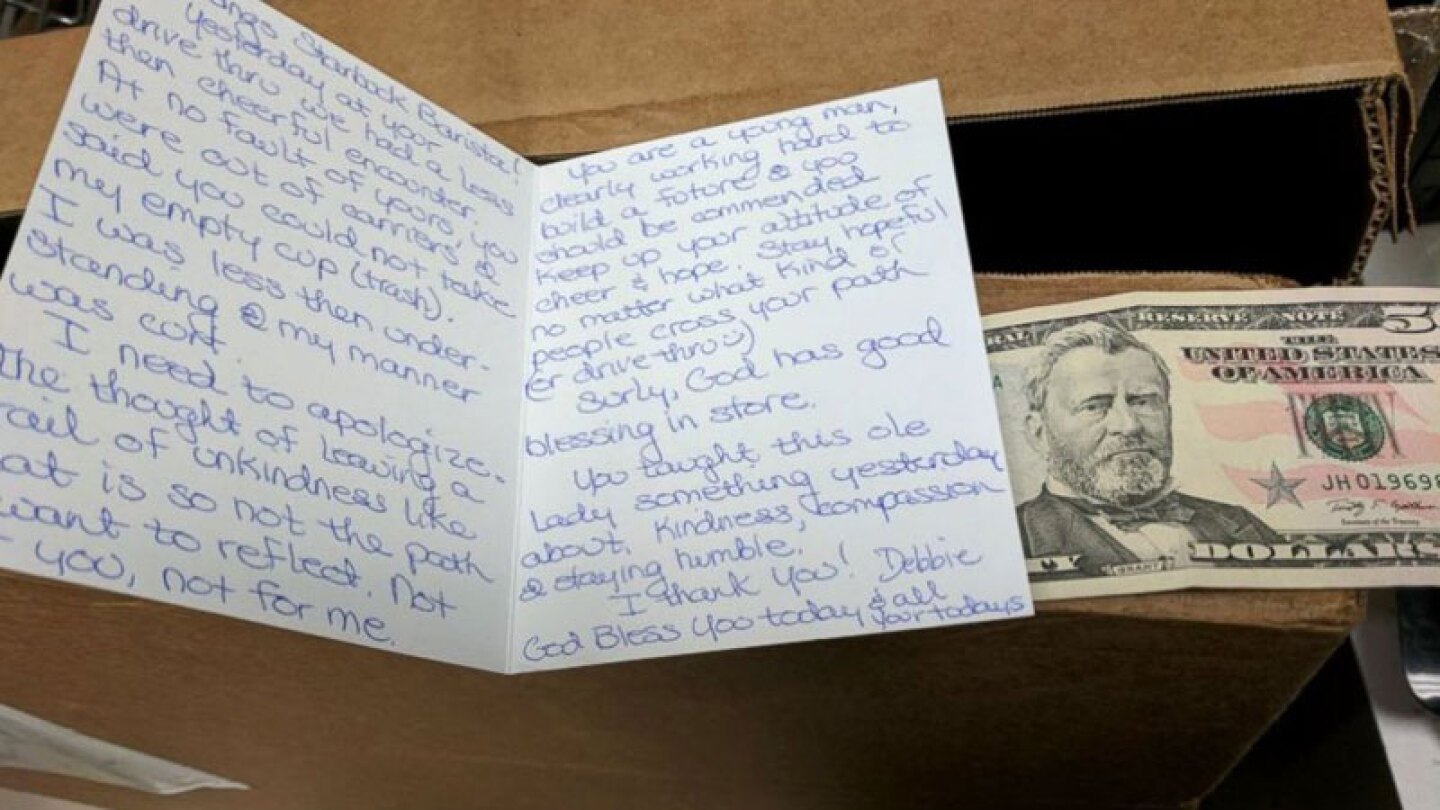 Starbuck Barista!
yesterday at your
drive thru we had a less
then cheerful encounter.
At no fault of yours, you
were out of carriers &
said you could not take
my empty cup (trash).
I was less then under-
standing & my manner
was curt.
I need to apologize.
the thought of leaving a
trail of unkindness like
that is so not the path
I want to reflect. Not
you, not for me.
You are a young man,
clearly working hard to
build a future & you
should be commended
Keep up your attitude of
cheer & hope. Stay hopeful
no matter what kind of
people cross your path
(er drive-thru )
Surly, God has good
blessing in store.
You taught this ole
Lady something yesterday
about, kindness, compassion
& staying humble.
I thank you! Debbie
God Bless you today & all
your todays
RESERVE NOTE
5
THE
UNITED STATES
OF AMERICA
JH 019698
Secretary of the Treasury
GRANT
DOLLARS